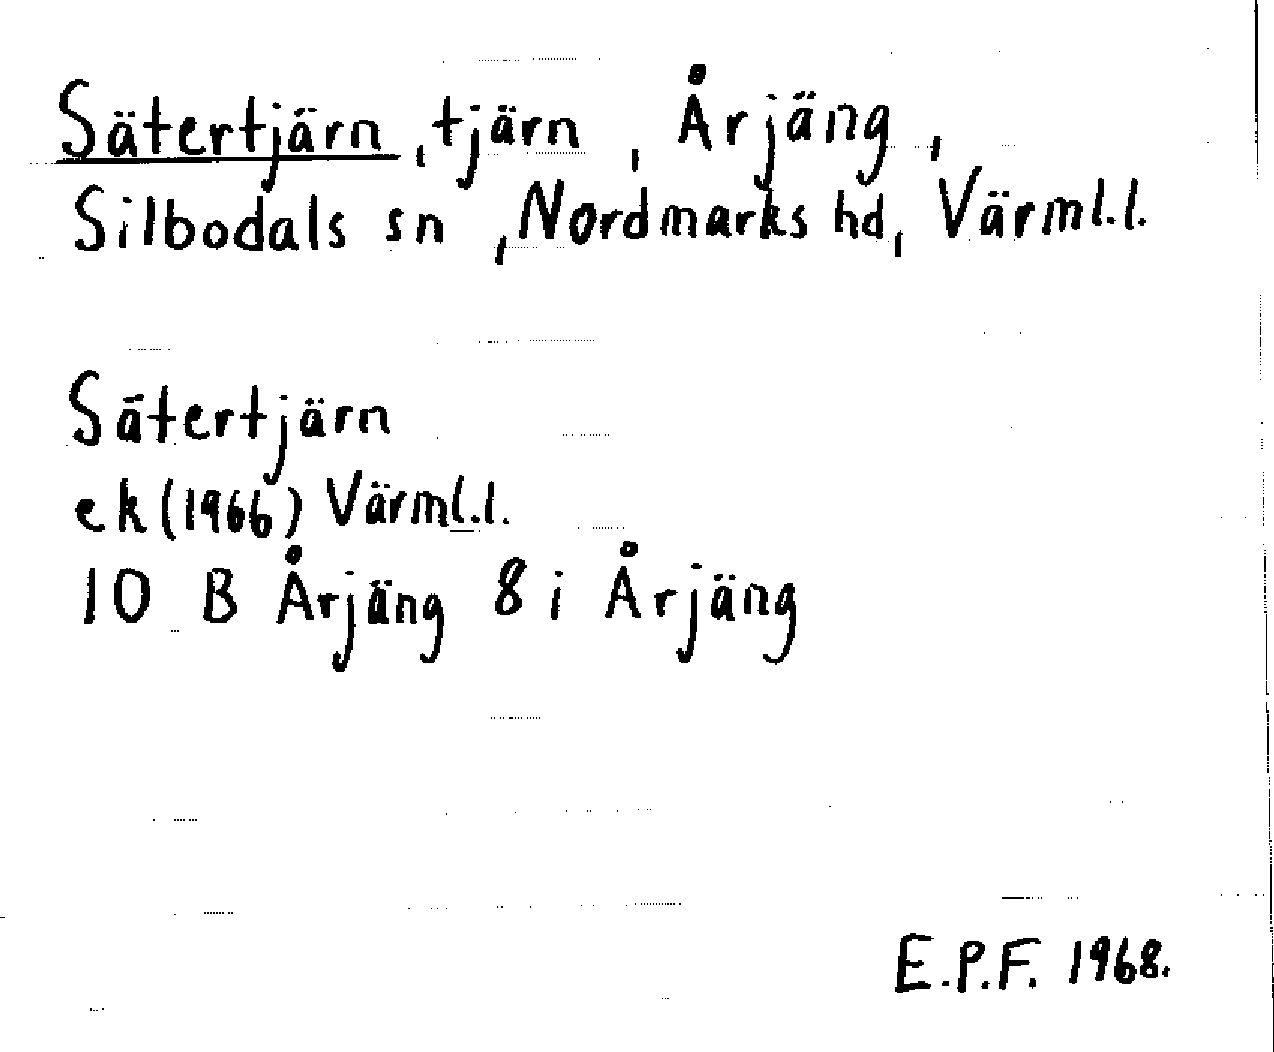 Sätertjärn, tjärn, Årjäng,
Silbodals sn, Nordmarks hd, Värml.l.
Sätertjärn
ek (1966) Värml.l.
10 B Årjäng 8 i Årjäng
E.P.F. 1968.